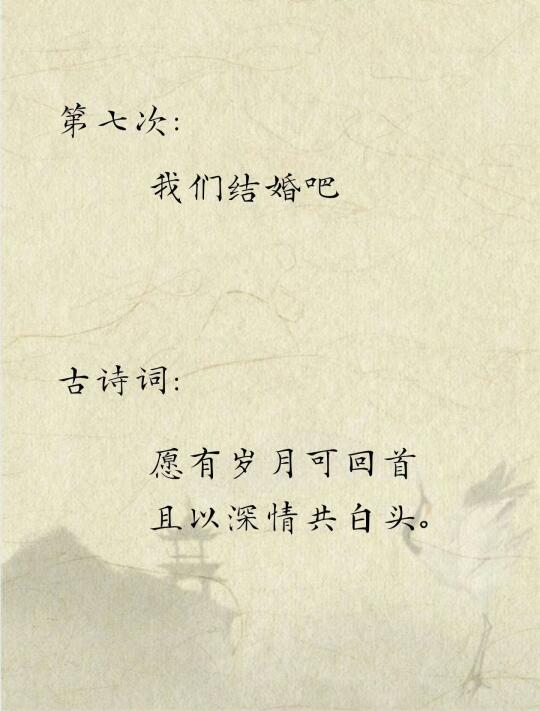 第七次:
我们结婚吧
古诗词:
愿有岁月可回首
且以深情共白头。